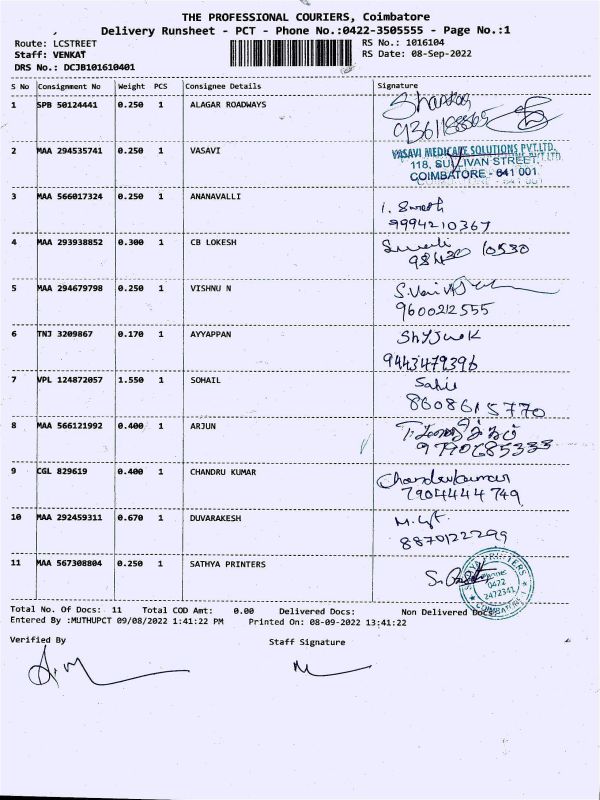 THE PROFESSIONAL COURIERS, Coimbatore
Delivery Runsheet - PCT - Phone No.:0422-3505555 - Page No.:1
Route: LCSTREET
RS No.: 1016104
Staff: VENKAT
RS Date: 08-Sep-2022
DRS No.: DCJB101610401
S No Consignment No Weight PCS Consignee Details Signature
1 SPB 50124441 0.250 1 ALAGAR ROADWAYS
2 MAA 294535741 0.250 1 VASAVI
VASAVI MEDICARE SOLUTIONS PVT.LTD.
118, SULLIVAN STREET,
COIMBATORE - 641 001
3 MAA 566017324 0.250 1 ANANAVALLI
9994210367
4 MAA 293938852 0.300 1 CB LOKESH
5 MAA 294679798 0.250 1 VISHNU N
9600212555
6 TNJ 3209867 0.170 1 AYYAPPAN
9443479396
7 VPL 124872057 1.550 1 SOHAIL
8608615770
8 MAA 566121992 0.400 1 ARJUN
9 CGL 829619 0.400 1 CHANDRU KUMAR
Chandrukumar
7904444749
10 MAA 292459311 0.670 1 DUVARAKESH
8870122299
11 MAA 567308804 0.250 1 SATHYA PRINTERS
0422
2472341
COIMBATORE
Total No. Of Docs: 11 Total COD Amt: 0.00 Delivered Docs: Non Delivered Docs:
Entered By :MUTHUPCT 09/08/2022 1:41:22 PM Printed On: 08-09-2022 13:41:22
Verified By Staff Signature